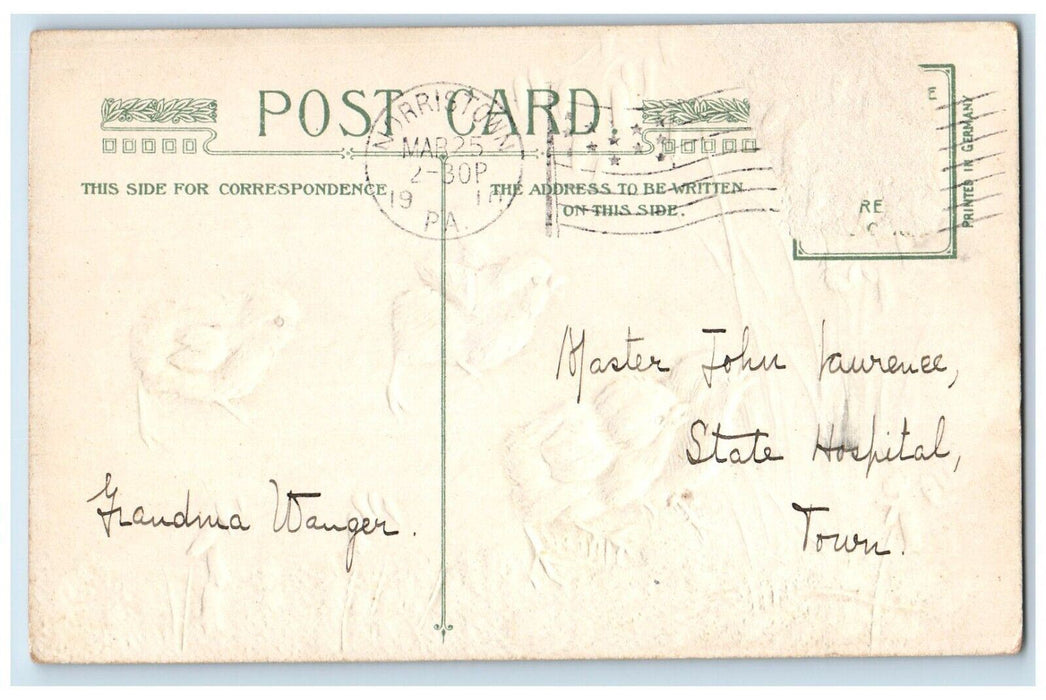 POST CARD.
NORRISTOWN
MAR 25
2-30P
19
PA.
THIS SIDE FOR CORRESPONDENCE
THE ADDRESS TO BE WRITTEN
ON THIS SIDE.
PRINTED IN GERMANY
Master John Lawrence,
State Hospital,
Town.
Grandma Wanger.